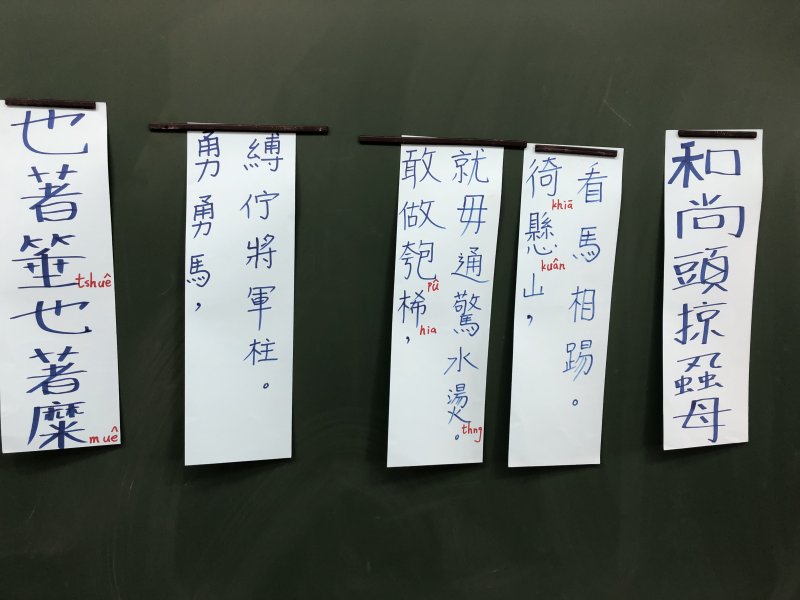 也著箠也著糜
tshuê
muê
勇勇馬，
縛佇將軍柱。
敢做匏桸，
pû
hia
就毋通驚水燙。
thng
徛懸山，
khiā
kuân
看馬相踢。
和尚頭掠蝨母